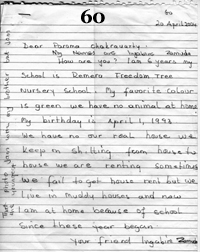 60
60
20 April 2004
Dear Parama Chakravarty
My Names are Ingabire
How are you? I am 6 years my
School is Remera Freedom Tree
Nursery School. My favorite Colour
is green we have no animal at home
My birthday is April 1, 1998
We have no our real house we
keep on Shifting from house to
house we are renting Sometimes
We fail to get house rent but we
live in Muddy houses and now
I am at home because of school
Since these year began.
Your friend Ingabire